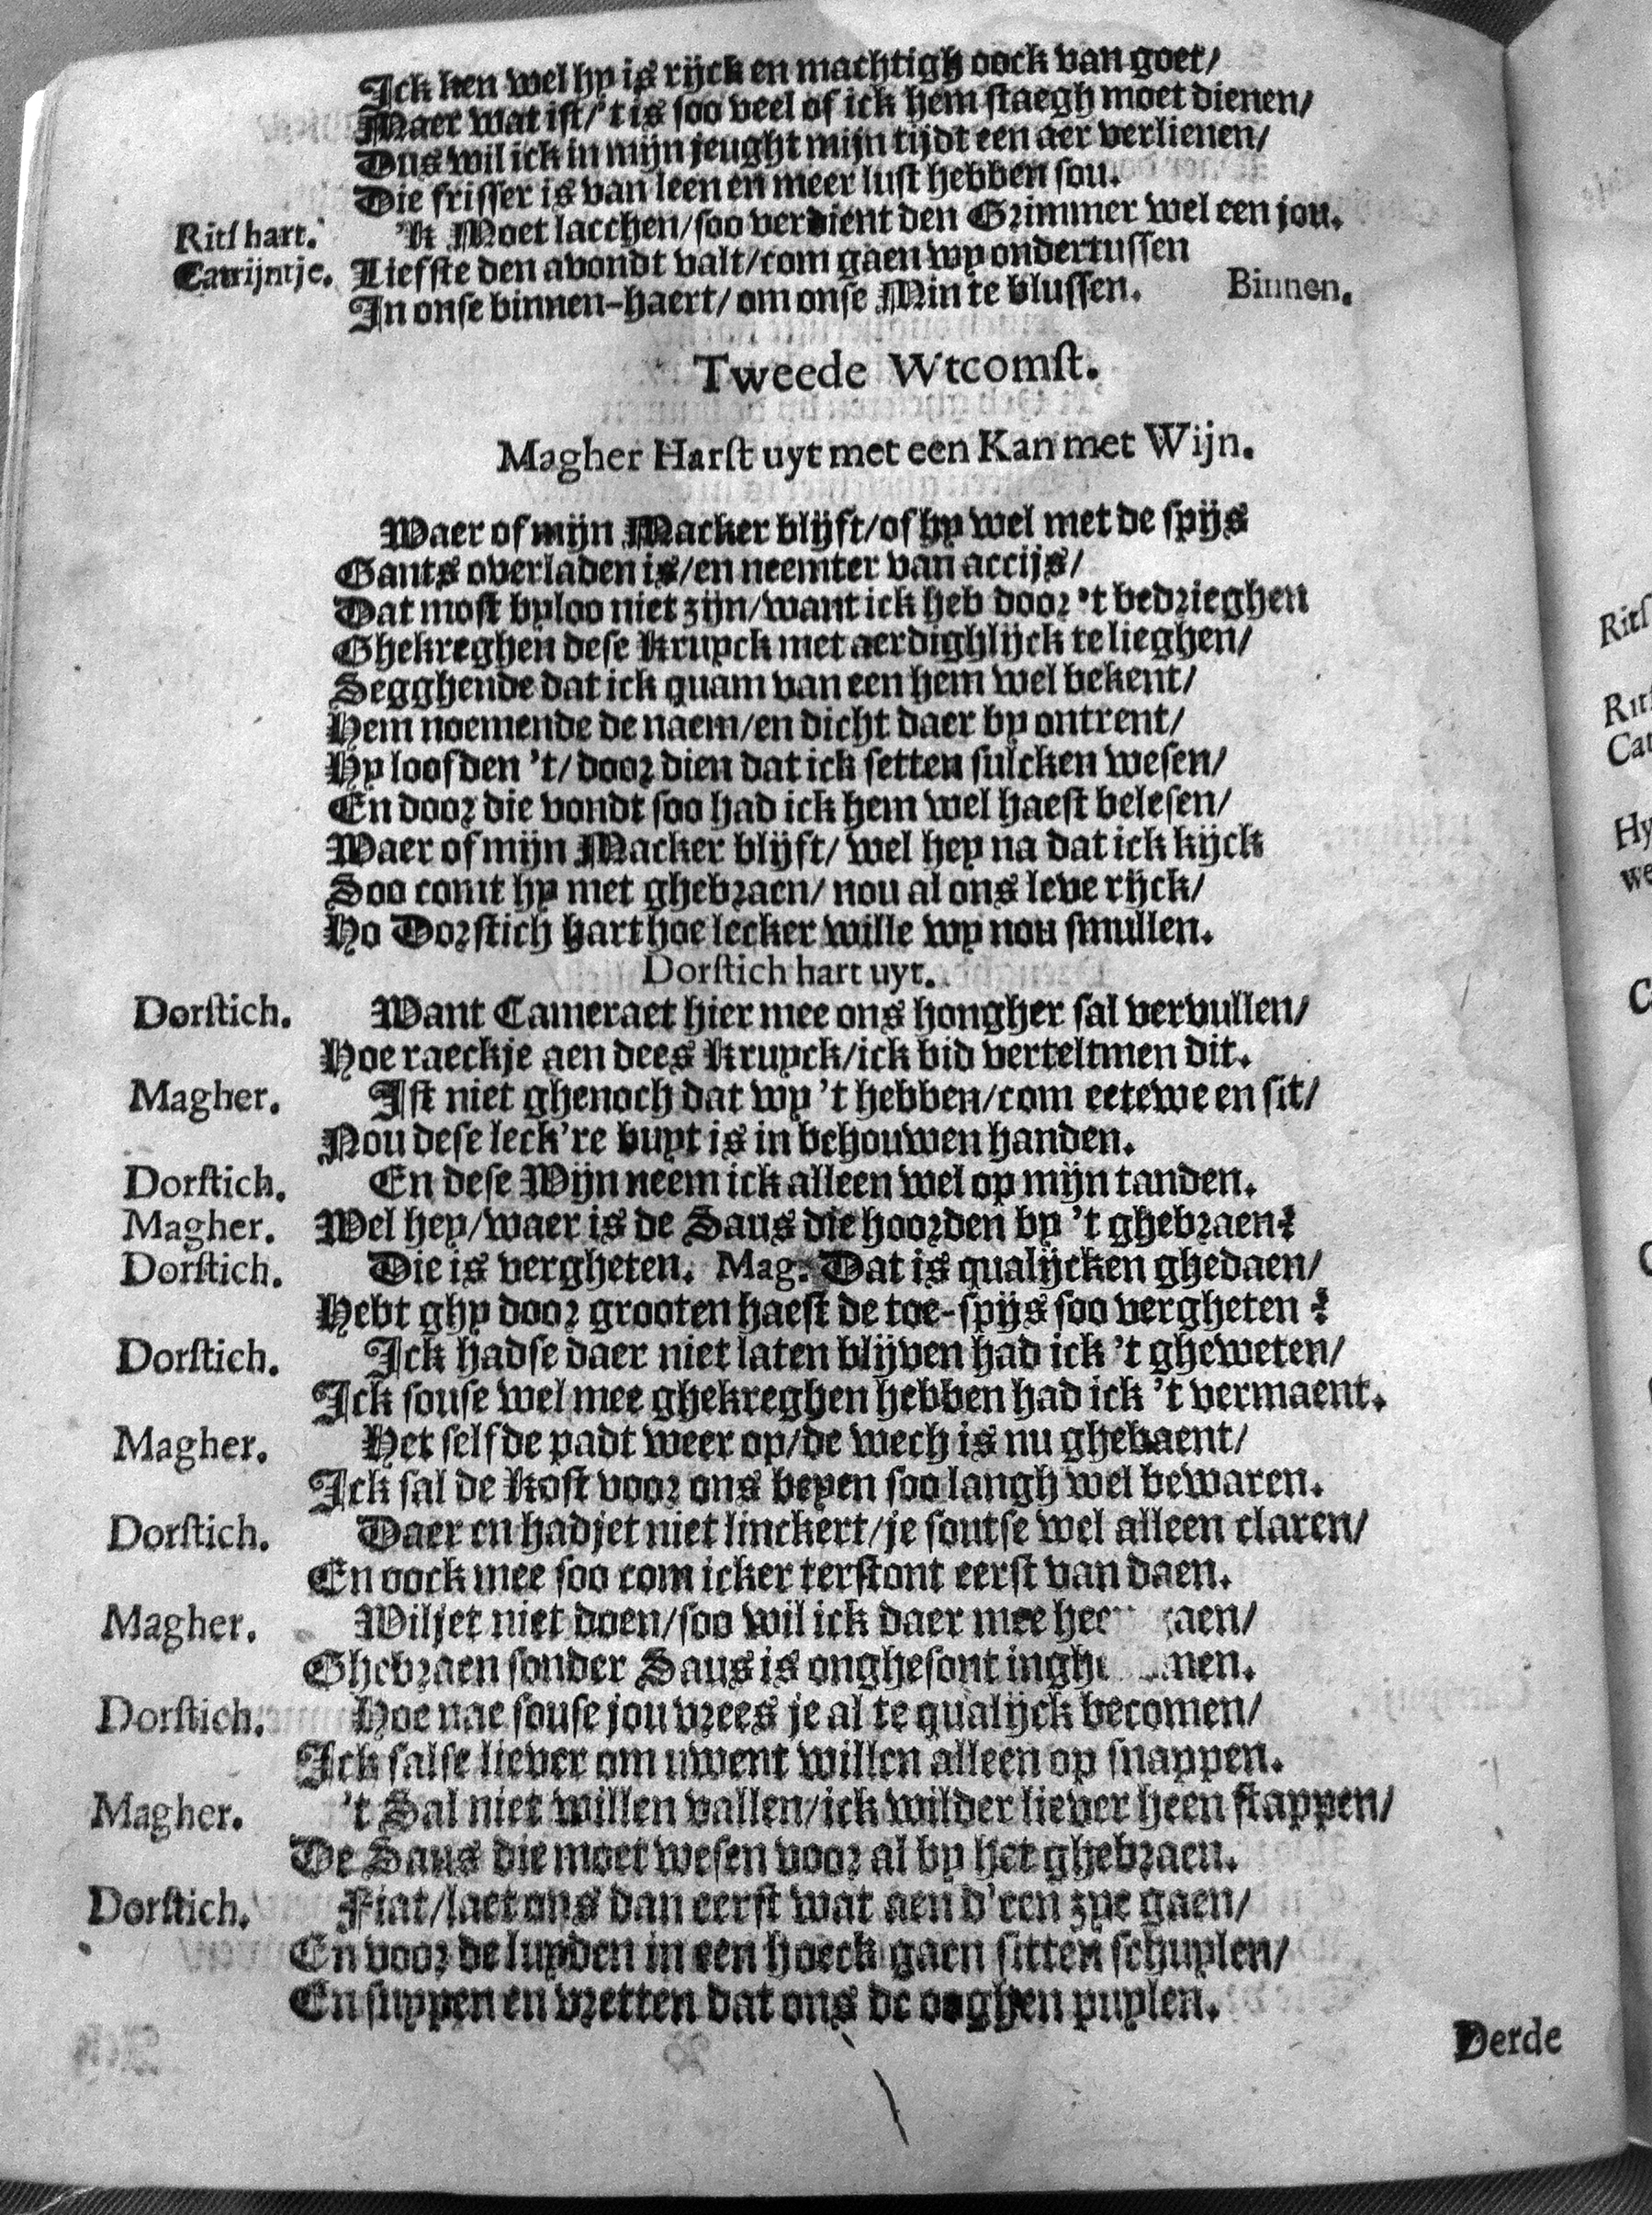 Ick ken wel hy is rijck en machtigh oock van goet/
Maer wat ist/ 't is soo veel of ick hem staegh moet dienen/
Dus wil ick in mijn jeught mijn tijdt een aer verlienen/
Die frisser is van leen en meer lust hebben sou.
Ritshart. 'K Moet lacchen/soo verdient den Grimmer wel een jou.
Catrijntje. Liefste den avondt valt/com gaen wy ondertussen
In onse binnen-haert/ om onse Min te blussen. Binnen.
Tweede Wtcomst.
Magher Harst uyt met een Kan met Wijn.
Waer of mijn Macker blijft/of hy wel met de spijs
Gants overladen is/en neemter van accijs/
Dat most byloo niet zijn/want ick heb door 't bedrieghen
Ghekreghen dese Kruyck met aerdighlijck te lieghen/
Segghende dat ick quam van een hem wel bekent/
Hem noemende de naem/en dicht daer by ontrent/
Hy loofden 't/ door dien dat ick setten sulcken wesen/
En door die vondt soo had ick hem wel haest belesen/
Waer of mijn Macker blijft/ wel hey na dat ick kijck
Soo comt hy met ghebraen/ nou al ons leve rijck/
Ho Dorstich hart hoe lecker wille wy nou smullen.
Dorstich hart uyt.
Dorstich. Want Cameraet hier mee ons hongher sal vervullen/
Hoe raeckje aen dees Kruyck/ick bid verteltmen dit.
Magher. Ist niet ghenoch dat wy 't hebben/com eetewe en sit/
Nou dese leck're buyt is in behouwen handen.
Dorstich. En dese Wijn neem ick alleen wel op mijn tanden.
Magher. Wel hey/waer is de Saus die hoorden by 't ghebraen?
Dorstich. Die is vergheten. Mag. Dat is qualijcken ghedaen/
Hebt ghy door grooten haest de toe-spijs soo vergheten?
Dorstich. Ick hadse daer niet laten blijven had ick 't gheweten/
Ick souse wel mee ghekreghen hebben had ick 't vermaent.
Magher. Het selfde padt weer op/de wech is nu ghebaent/
Ick sal de Kost voor ons beyen soo langh wel bewaren.
Dorstich. Daer en hadjet niet linckert/je soutse wel alleen claren/
En oock mee soo com icker terstont eerst van daen.
Magher. Wiljet niet doen/soo wil ick daer mee
Ghebraen sonder Saus is onghesont
Dorstich. Hoe nae souse jou vrees je al te qualijck becomen/
Ick salse liever om uwent willen alleen op snappen.
Magher. 't Sal niet willen vallen/ick wilder liever heen stappen/
De Saus die moet wesen voor al by het ghebraen.
Dorstich. Fiat/laet ons dan eerst wat aen d'een zye gaen/
En voor de luyden in een hoeck gaen sitten schuylen/
En suypen en vretten dat ons de ooghen puylen.
Derde